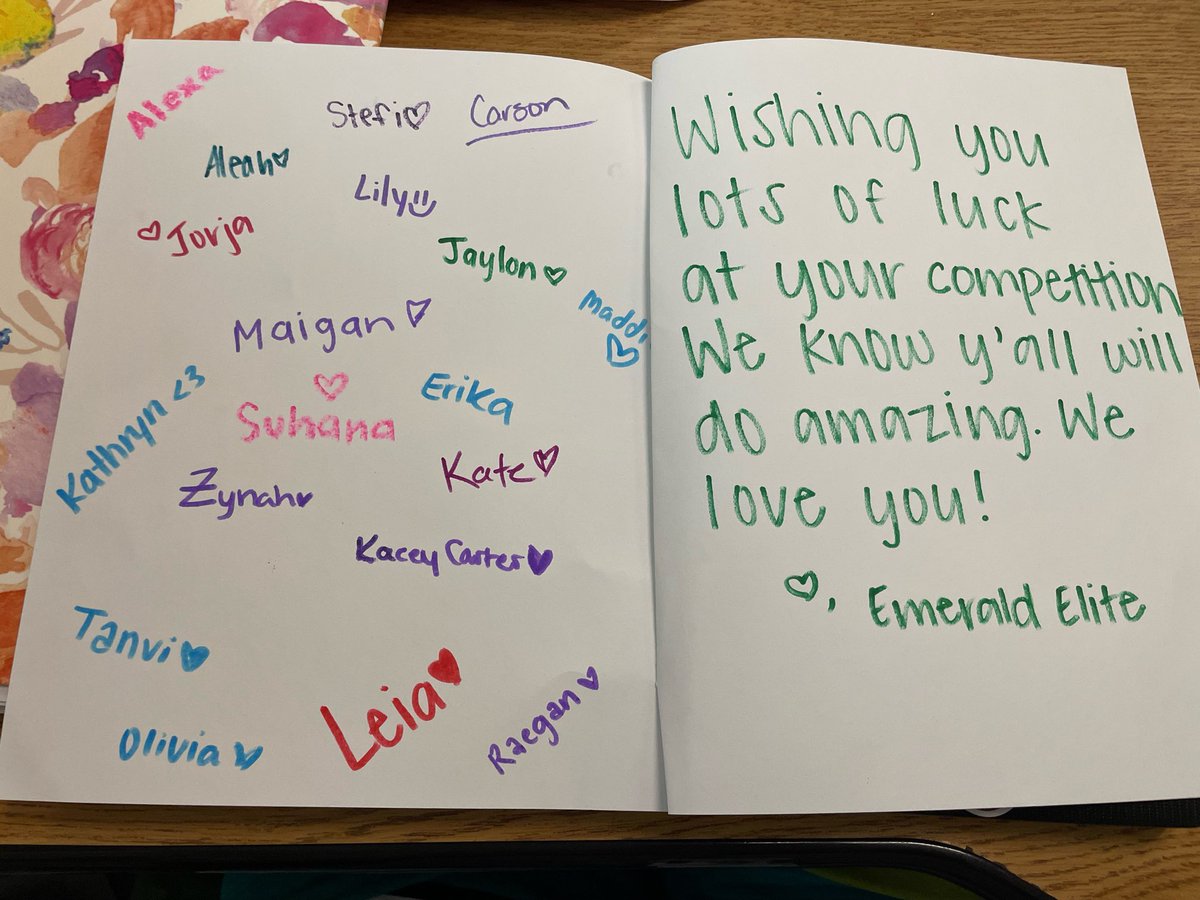 Alexa
Stefi♡ Carson
Aleah♡
Lily
♡Jorja
Jaylon♡
Maddi♡
Maigan♡
♡
Suhana
Erika
Kathryn <3
Kate♡
Zynah♥
Kacey Carter♥
Tanvi♥
Leia♥
Raegan♥
Olivia♥
Wishing you
lots of luck
at your competition
We know y'all will
do amazing. We
love you!
♡, Emerald Elite